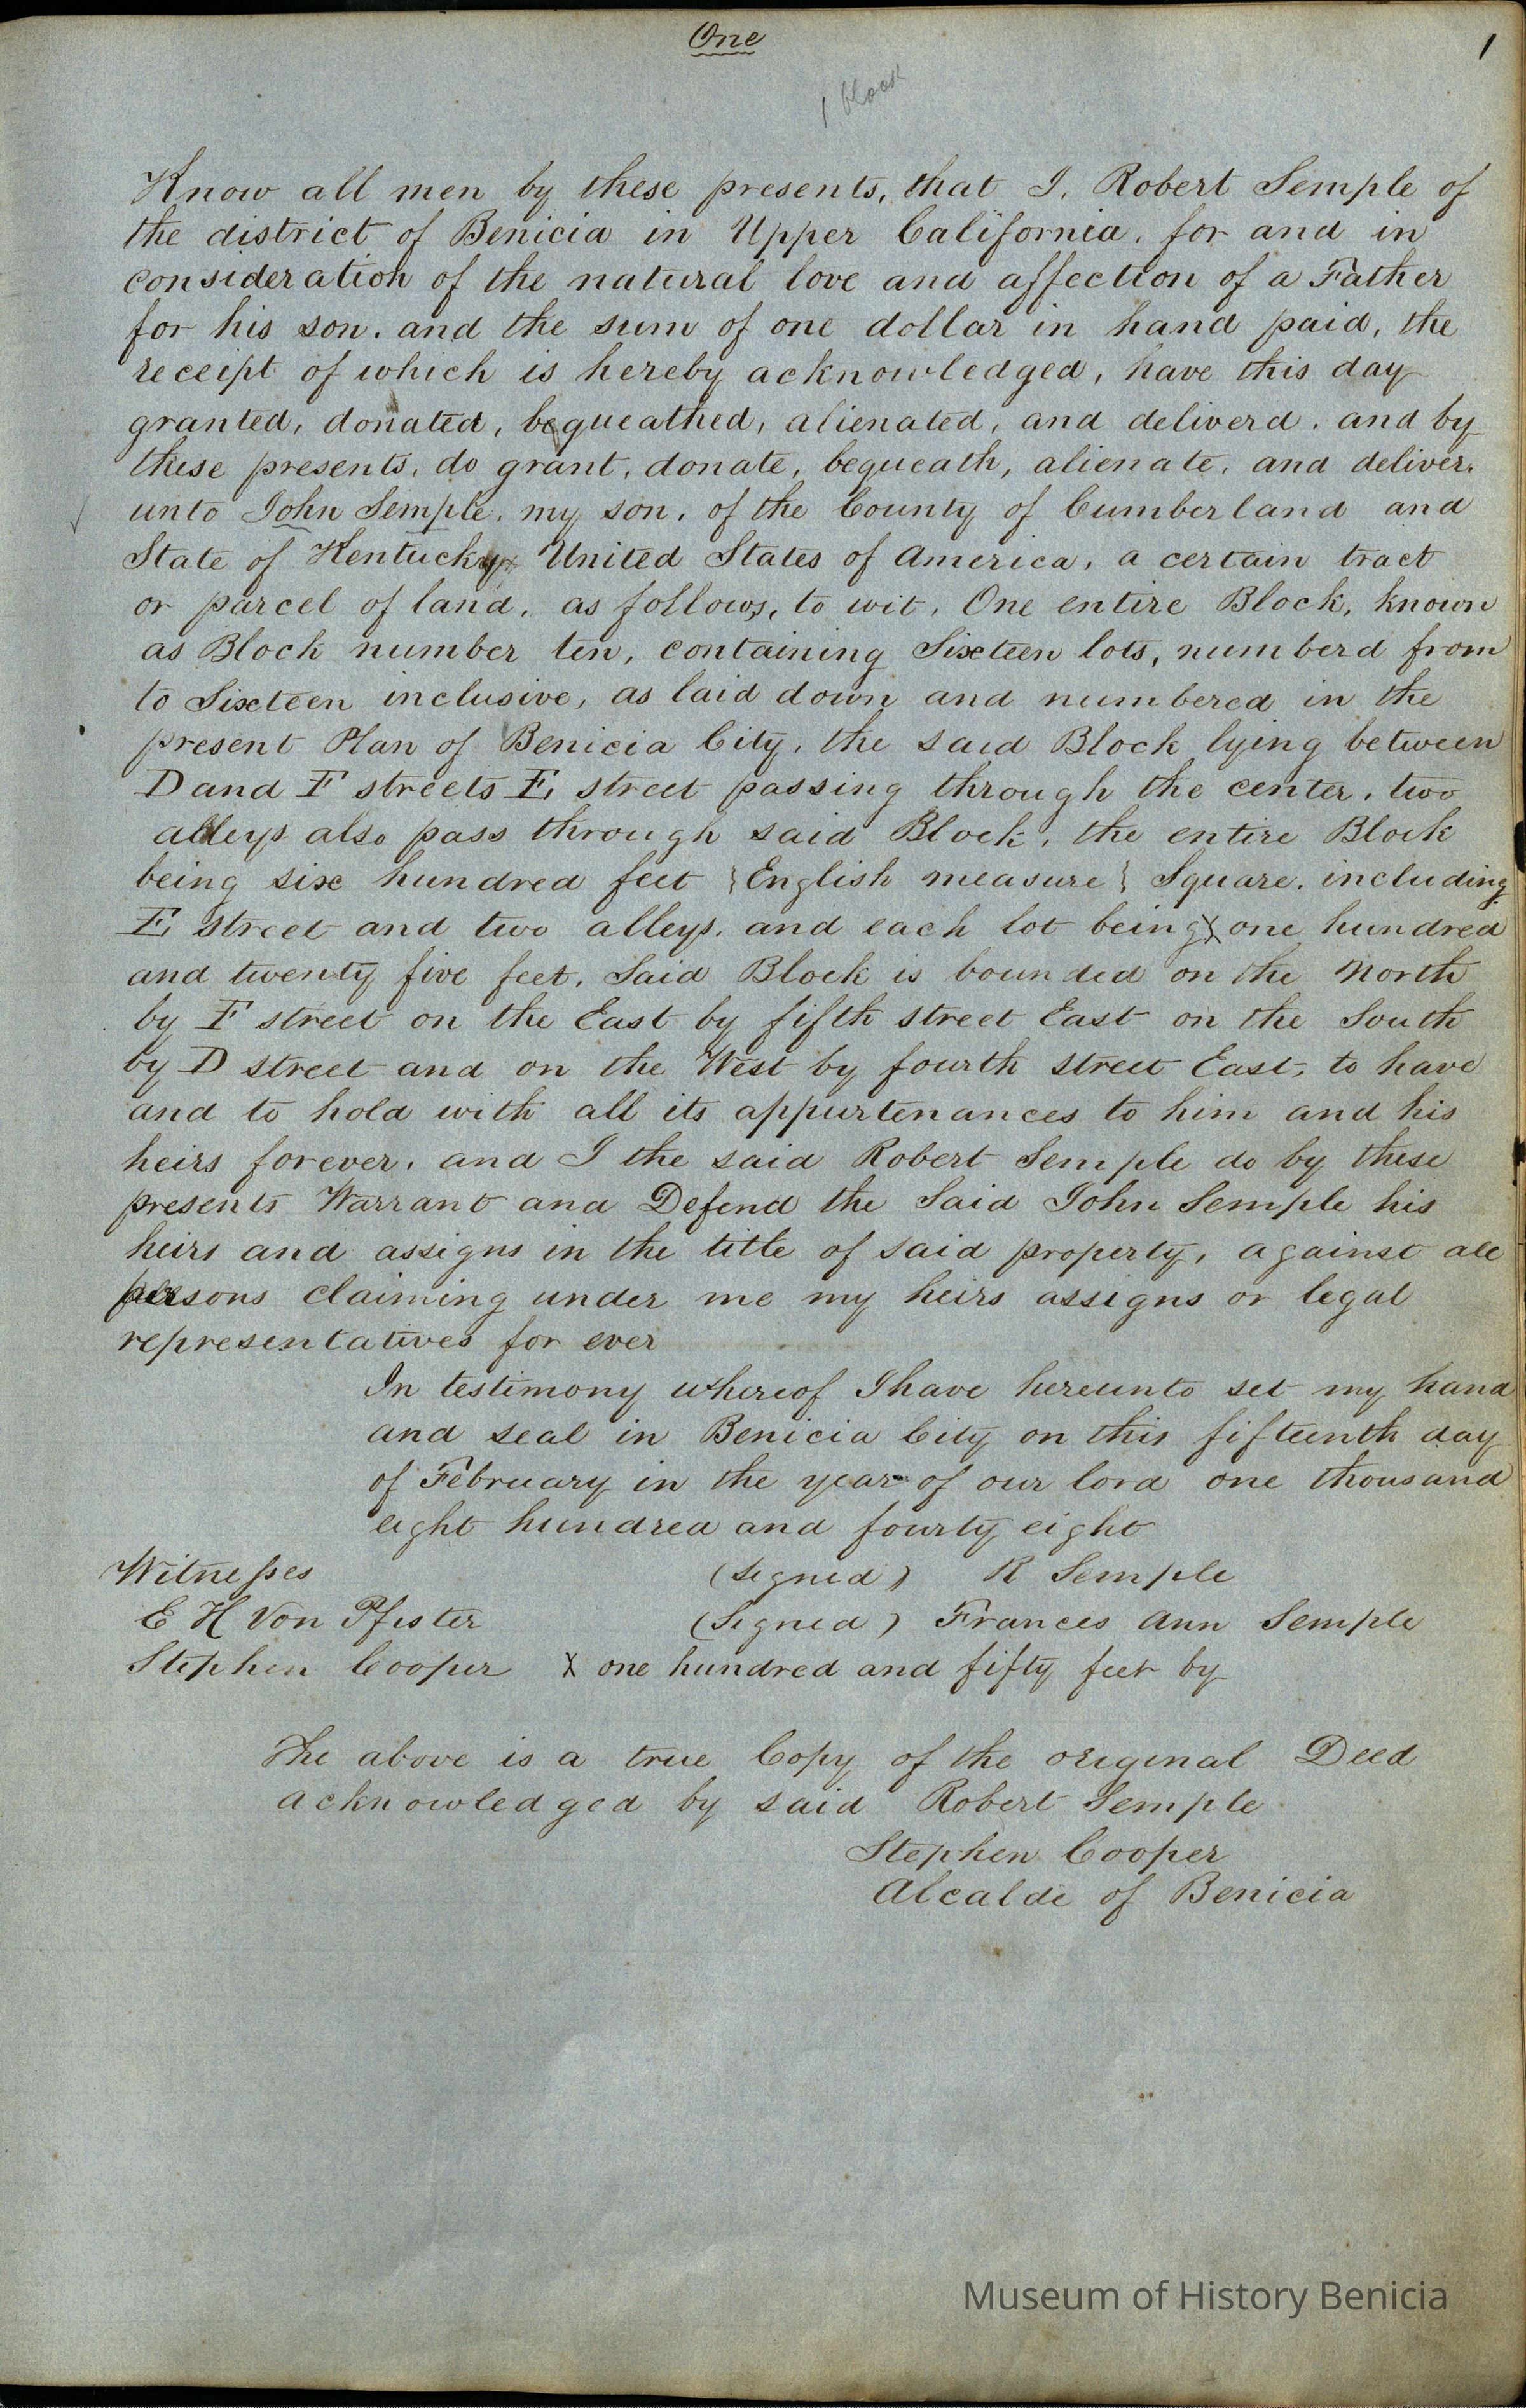 One
1
1 block
Know all men by these presents, that I, Robert Semple of
the district of Benicia in Upper California, for and in
consideration of the natural love and affection of a Father
for his son, and the sum of one dollar in hand paid, the
receipt of which is hereby acknowledged, have this day
granted, donated, bequeathed, alienated, and deliverd, and by
these presents, do grant, donate, bequeath, alienate, and deliver,
unto John Semple, my son, of the County of Cumberland and
State of Kentucky United States of America, a certain tract
or parcel of land, as follows, to wit, One entire Block, known
as Block number ten, containing Sixteen lots, numberd from
to Sixteen inclusive, as laid down and numbered in the
present Plan of Benicia City, the said Block lying between
D and F streets E, street passing through the center, two
alleys also pass through said Block, the entire Block
being six hundred feet {English measure} Square, including
E, street and two alleys, and each lot being X one hundred
and twenty five feet, Said Block is bounded on the North
by F street on the East by fifth street East on the South
by D street and on the West by fourth street East, to have
and to hold with all its appurtenances to him and his
heirs forever, and I the said Robert Semple do by these
presents Warrant and Defend the Said John Semple his
heirs and assigns in the title of said property, against all
persons claiming under me my heirs assigns or legal
representatives for ever
In testimony whereof I have hereunto set my hand
and seal in Benicia City on this fifteenth day
of February in the year of our lord one thousand
eight hundred and fourty eight
Witnesses (signed) R Semple
E H Von Pfister (Signed) Frances Ann Semple
Stephen Cooper X one hundred and fifty feet by
The above is a true Copy of the original Deed
acknowledged by said Robert Semple
Stephen Cooper
Alcalde of Benicia
Museum of History Benicia